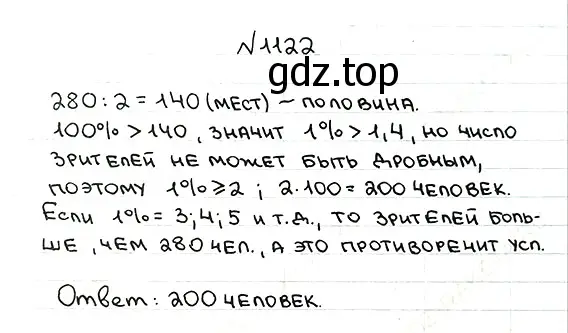 №1122
gdz.top
280:2=140(мест) – половина.
100%>140, значит 1%>1,4, но число
зрителей не может быть дробным,
поэтому 1%⩾2; 2·100=200 человек.
Если 1%=3;4;5 и т.д., то зрителей боль-
ше, чем 280 чел., а это противоречит усл.
Ответ: 200 человек.